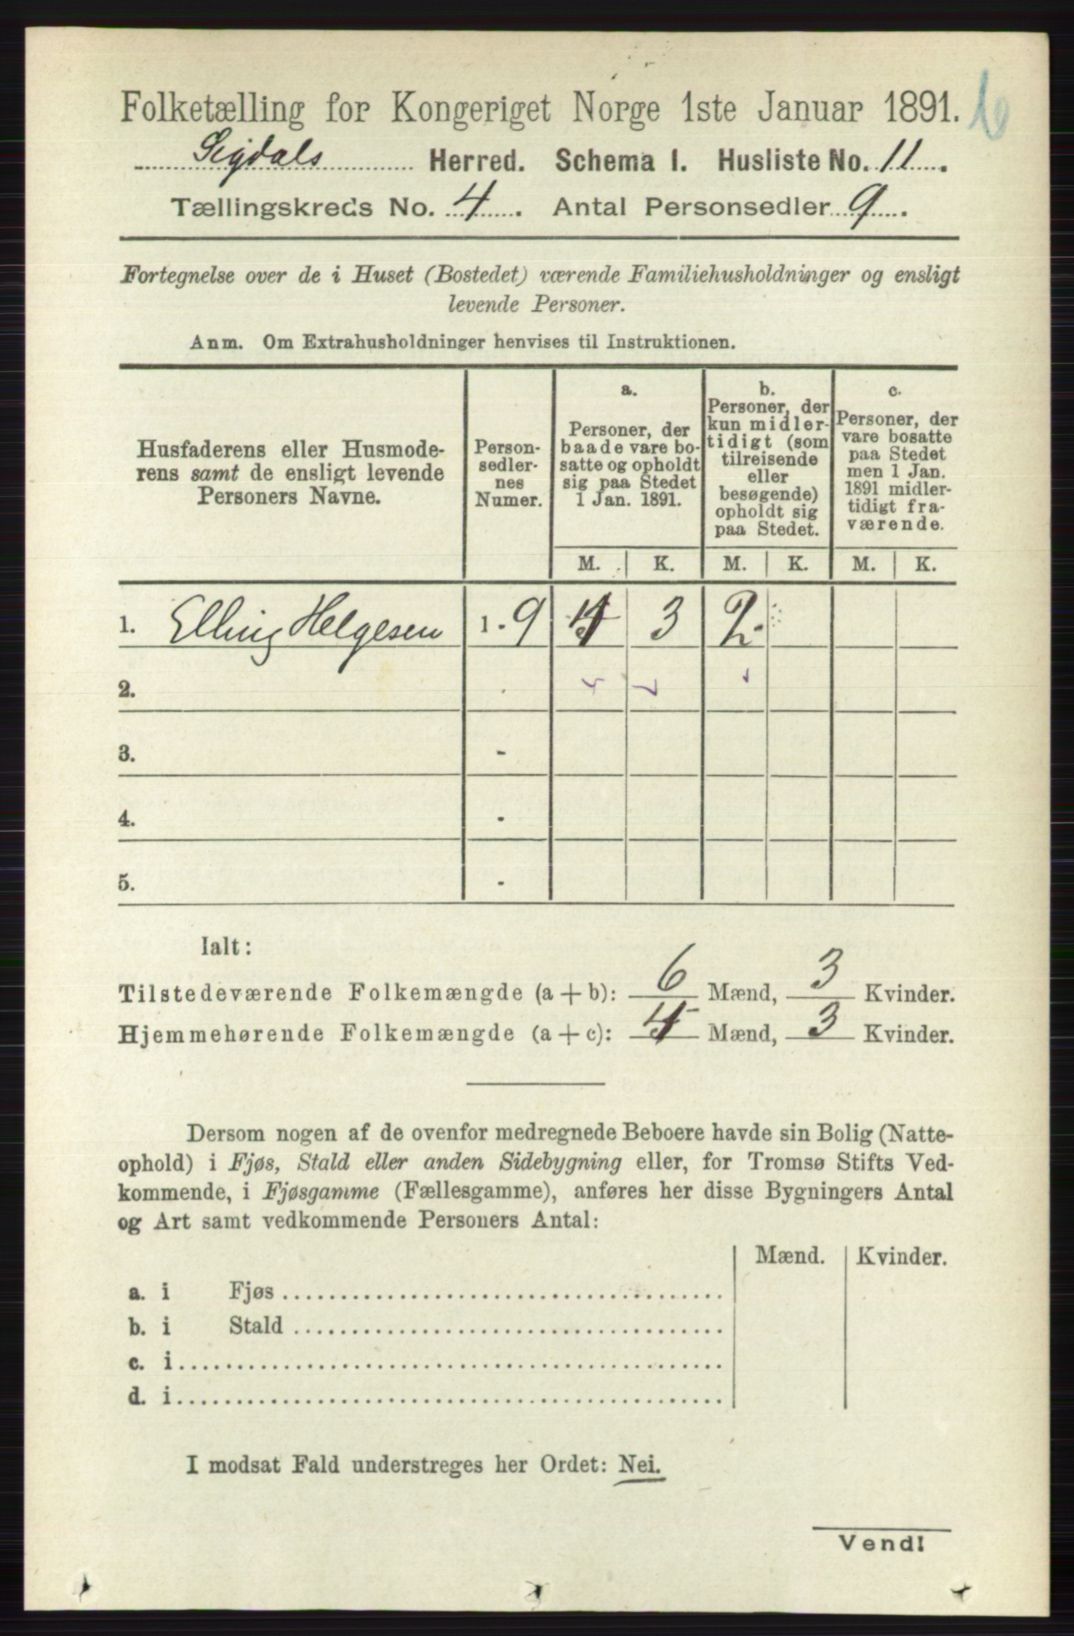 Folketælling for Kongeriget Norge 1ste Januar 1891.
Sigdals Herred. Schema I. Husliste No. 11.
Tællingskreds No. 4. Antal Personsedler 9.
Fortegnelse over de i Huset (Bostedet) værende Familiehusholdninger og ensligt
levende Personer.
Anm. Om Extrahusholdninger henvises til Instruktionen.
Husfaderens eller Husmode-
rens samt de ensligt levende
Personers Navne.
Person-
sedler-
nes
Numer.
a.
Personer, der
baade vare bo-
satte og opholdt
sig paa Stedet
1 Jan. 1891.
b.
Personer, der
kun midler-
tidigt (som
tilreisende
eller
besøgende)
opholdt sig
paa Stedet.
c.
Personer, der
vare bosatte
paa Stedet
men 1 Jan.
1891 midler-
tidigt fra-
værende.
M. K. M. K. M. K.
1. Elling Helgesen 1 - 9 4 3 2
2.
3. -
4. -
5. -
Ialt:
Tilstedeværende Folkemængde (a + b): 6 Mænd, 3 Kvinder.
Hjemmehørende Folkemængde (a + c): 4 Mænd, 3 Kvinder.
Dersom nogen af de ovenfor medregnede Beboere havde sin Bolig (Natte-
ophold) i Fjøs, Stald eller anden Sidebygning eller, for Tromsø Stifts Ved-
kommende, i Fjøsgamme (Fællesgamme), anføres her disse Bygningers Antal
og Art samt vedkommende Personers Antal:
Mænd. Kvinder.
a. i Fjøs
b. i Stald
c. i
d. i
I modsat Fald understreges her Ordet: Nei.
Vend!